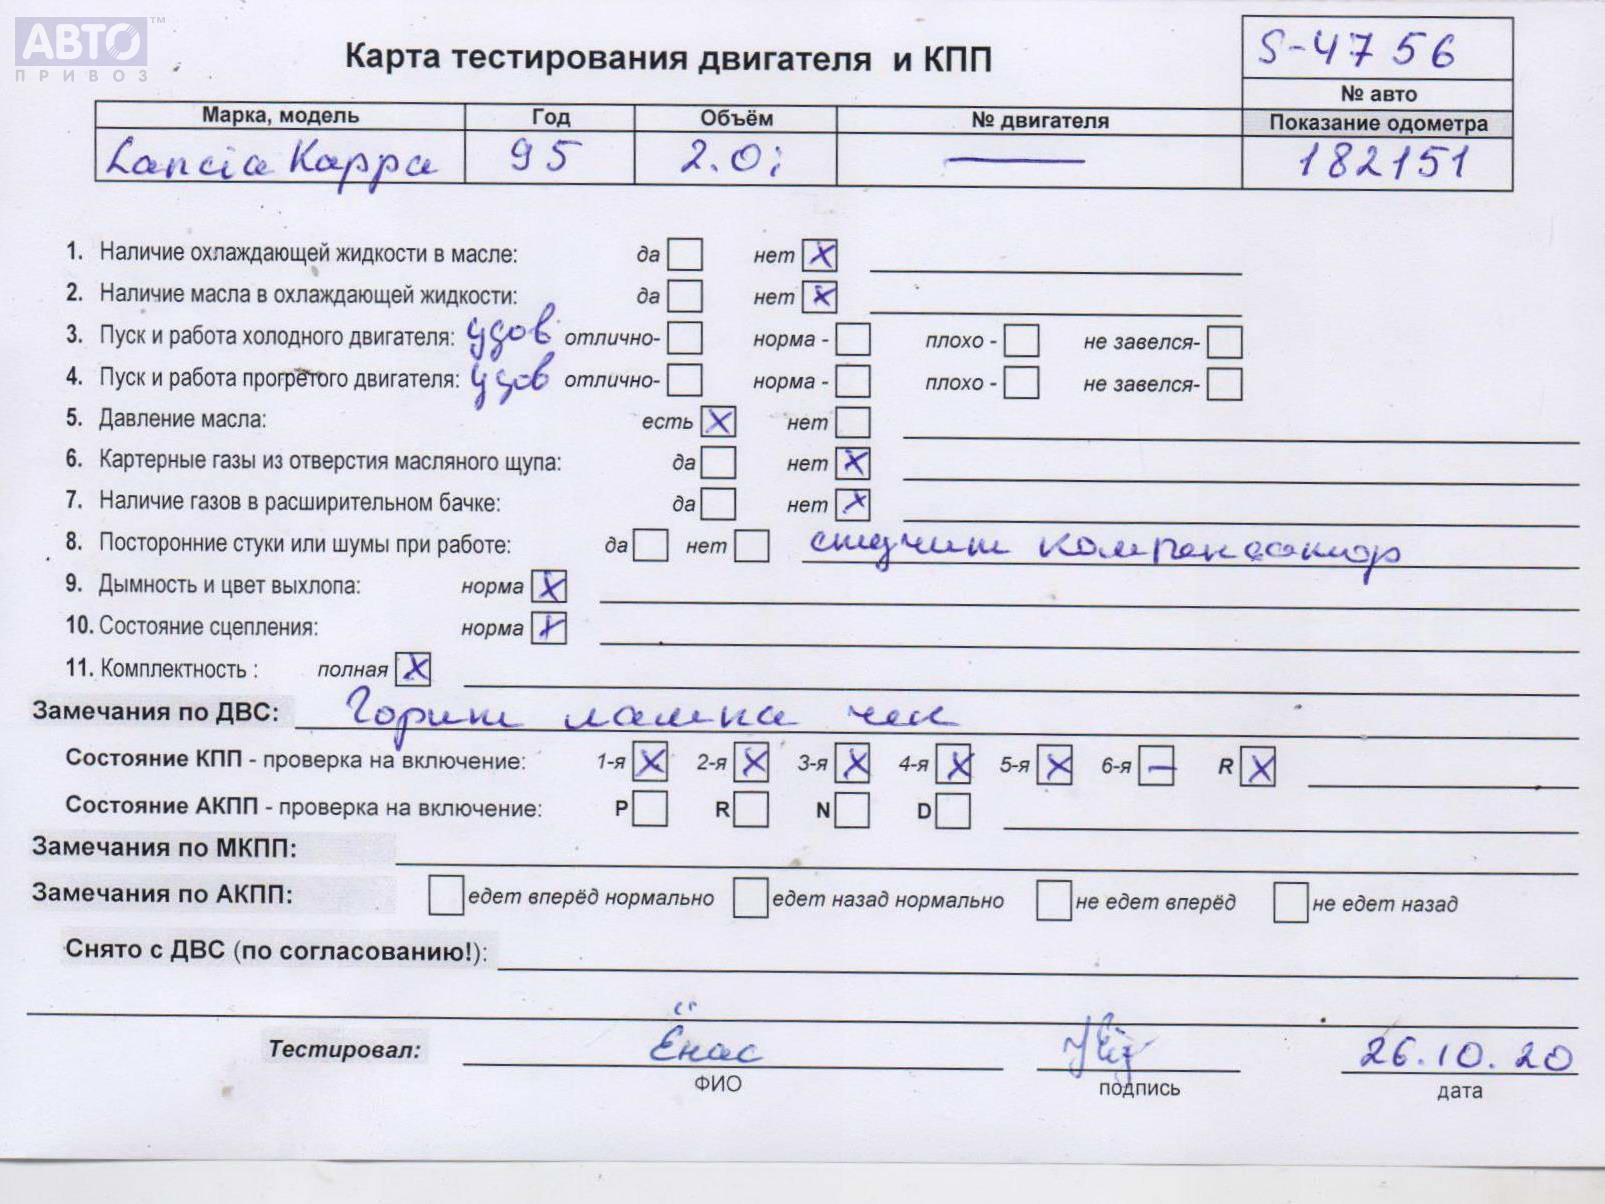 АВТО™
ПРИВОЗ
Карта тестирования двигателя и КПП
S-4756
№ авто
Марка, модель Год Объём № двигателя Показание одометра
Lancia Kappa 95 2.0i — 182151
1. Наличие охлаждающей жидкости в масле: да нет X
2. Наличие масла в охлаждающей жидкости: да нет X
3. Пуск и работа холодного двигателя: удов отлично- норма - плохо - не завелся-
4. Пуск и работа прогретого двигателя: удов отлично- норма - плохо - не завелся-
5. Давление масла: есть X нет
6. Картерные газы из отверстия масляного щупа: да нет X
7. Наличие газов в расширительном бачке: да нет X
8. Посторонние стуки или шумы при работе: да нет стучит компенсатор
9. Дымность и цвет выхлопа: норма X
10. Состояние сцепления: норма X
11. Комплектность : полная X
Замечания по ДВС: Горит лампа чек
Состояние КПП - проверка на включение: 1-я X 2-я X 3-я X 4-я X 5-я X 6-я — R X
Состояние АКПП - проверка на включение: P R N D
Замечания по МКПП:
Замечания по АКПП: едет вперёд нормально едет назад нормально не едет вперёд не едет назад
Снято с ДВС (по согласованию!):
Тестировал: Ёнас 26.10.20
ФИО подпись дата